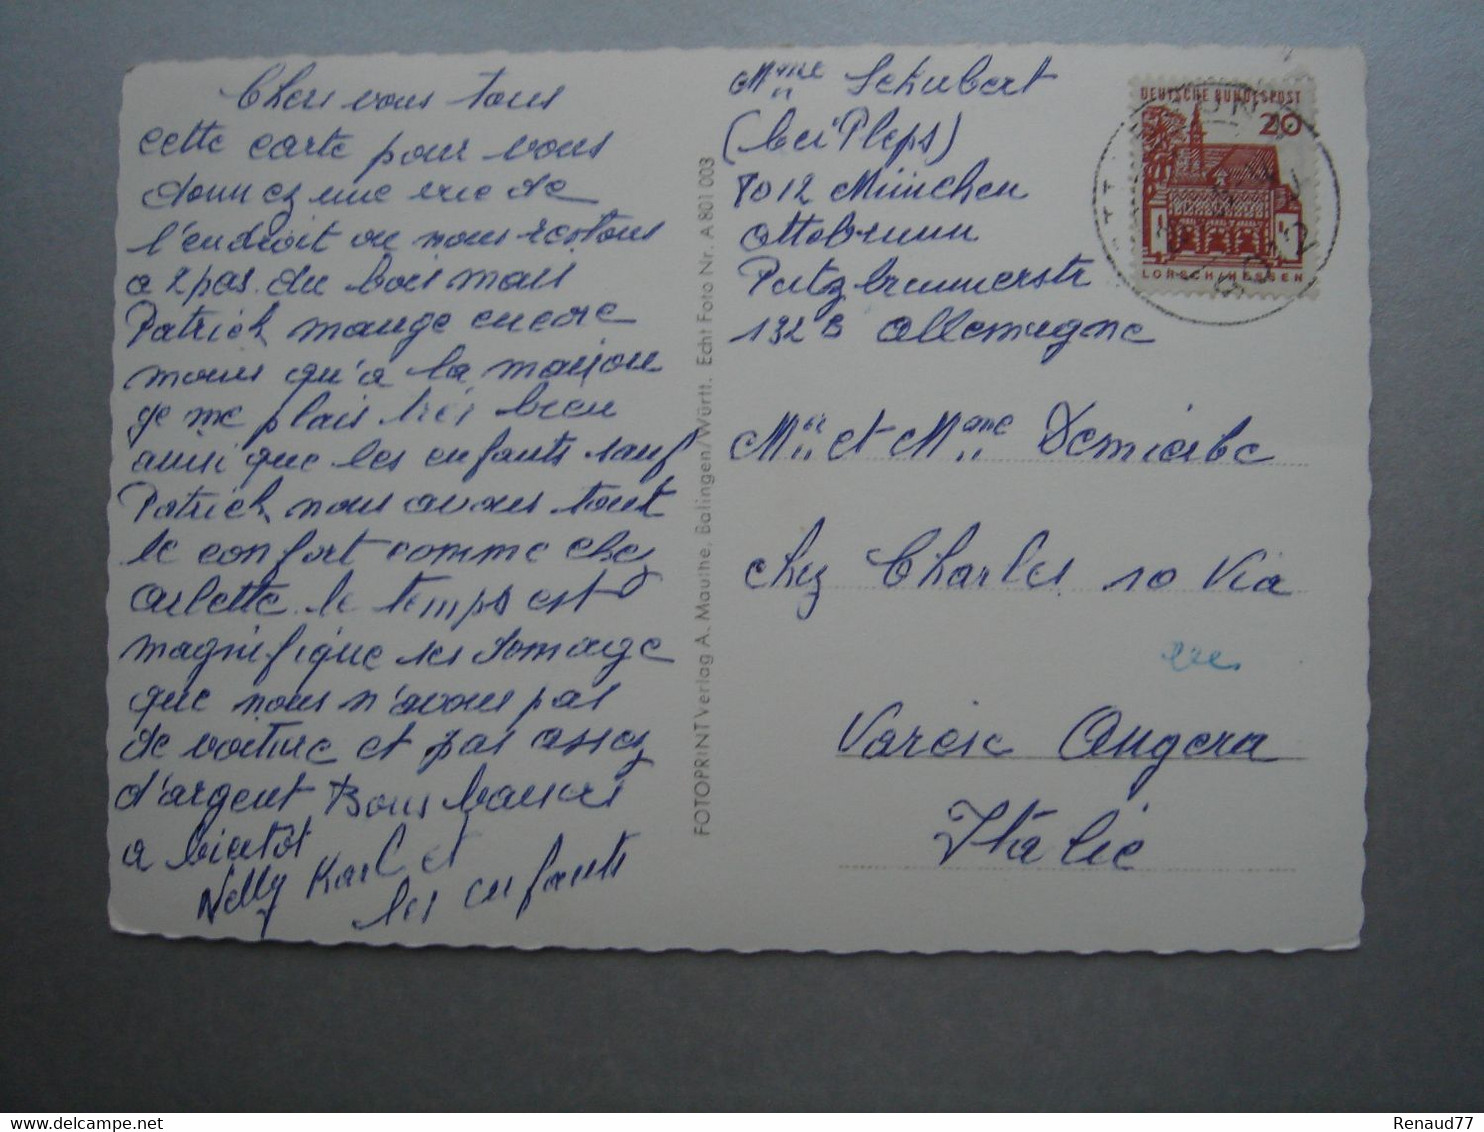 Chers vous tous
cette carte pour vous
donnez une vue de
l'endroit ou nous restons
a 2 pas du bois mais
Patrick mange encore
moins qu'a la maison
je me plais très bien
ainsi que les enfants sauf
Patrick nous avons tout
le confort comme chez
Arlette. le temps est
magnifique ses domage
que nous n'avons pas
de voiture et pas assez
d'argent Bons baisers
a bientôt
Nelly Karl et
les enfants
FOTOPRINT Verlag A. Mauthe, Balingen/Württ. Echt Foto Nr. A 801 003
Mme Schubert
(bei Pleps)
8012 München
Ottobrunn
Putzbrunnerstr
132 B Allemagne
DEUTSCHE BUNDESPOST
20
LORSCH/HESSEN
8012
Mr et Mme Demierbe
chez Charles 10 Via
Varese Angera
Italie
delcampe.net
Renaud77